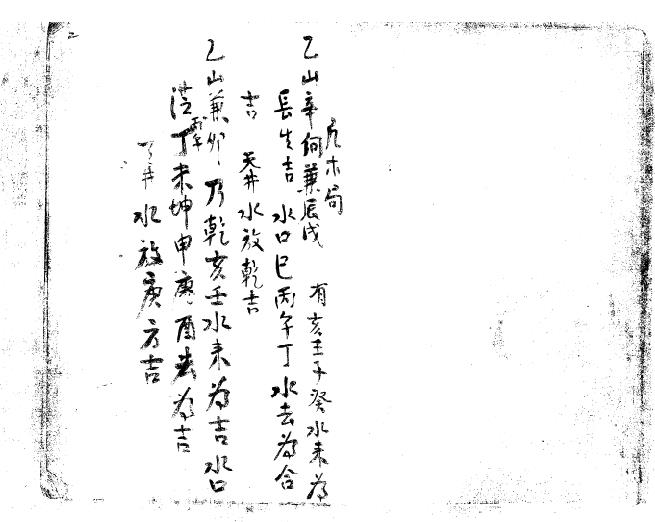 乙山辛向兼辰戌 有亥壬子癸水来為
木局
長生吉 水口巳丙午丁水去為合
吉 天井水放乾吉
乙山兼卯乃乾亥壬水来為吉水口
丙午丁未坤申庚酉去為吉
天井水放庚方吉